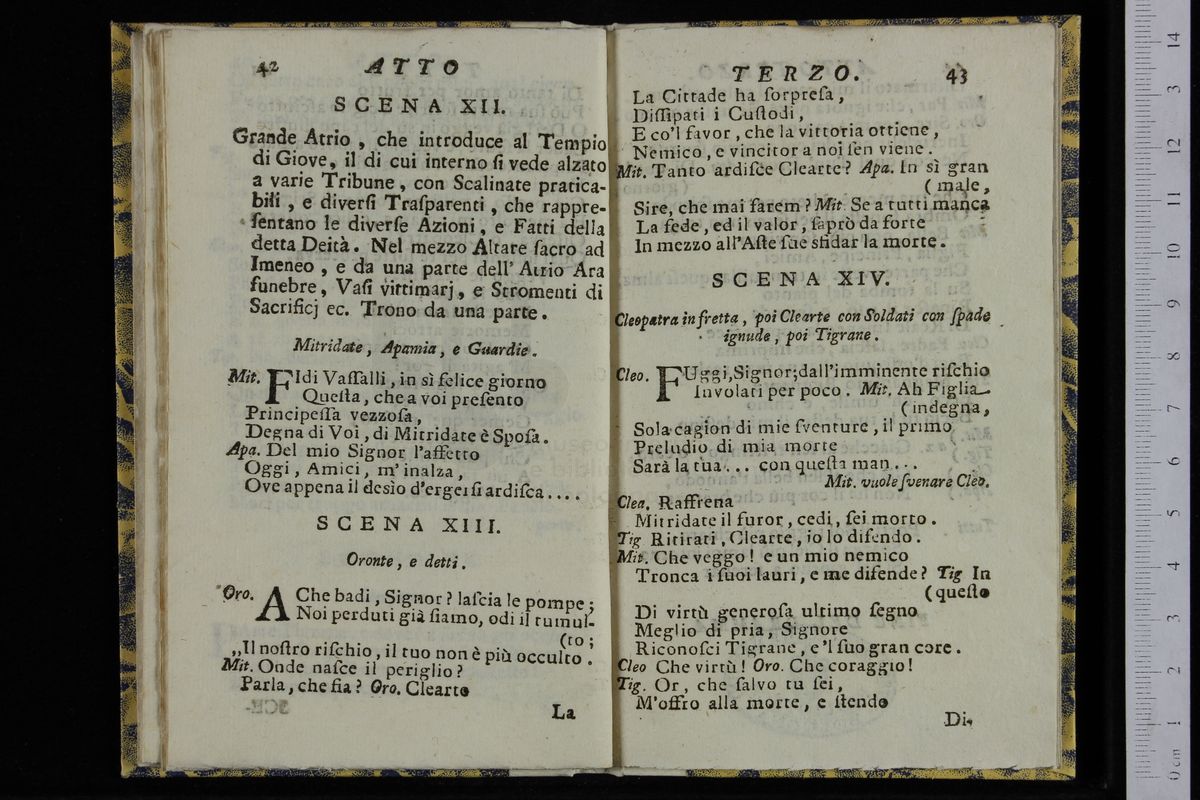 42 ATTO
SCENA XII.
Grande Atrio, che introduce al Tempio
di Giove, il di cui interno ſi vede alzato
a varie Tribune, con Scalinate pratica-
bili, e diverſi Traſparenti, che rappre-
ſentano le diverſe Azioni, e Fatti della
detta Deità. Nel mezzo Altare ſacro ad
Imeneo, e da una parte dell' Atrio Ara
funebre, Vaſi vittimarj, e Stromenti di
Sacrificj ec. Trono da una parte.
Mitridate, Apamia, e Guardie.
Mit. FIdi Vaſſalli, in sì felice giorno
Queſta, che a voi preſento
Principeſſa vezzoſa,
Degna di Voi, di Mitridate è Spoſa.
Apa. Del mio Signor l'affetto
Oggi, Amici, m'inalza,
Ove appena il desìo d'ergerſi ardiſca....
SCENA XIII.
Oronte, e detti.
Oro. A Che badi, Signor? laſcia le pompe;
Noi perduti già ſiamo, odi il tumul-
(to;
„Il noſtro riſchio, il tuo non è più occulto.
Mit. Onde naſce il periglio?
Parla, che fia? Oro. Clearte
La
TERZO. 43
La Cittade ha ſorpreſa,
Diſſipati i Cuſtodi,
E co'l favor, che la vittoria ottiene,
Nemico, e vincitor a noi ſen viene.
Mit. Tanto ardiſce Clearte? Apa. In sì gran
(male,
Sire, che mai farem? Mit. Se a tutti manca
La fede, ed il valor, ſaprò da forte
In mezzo all'Aſte ſue sfidar la morte.
SCENA XIV.
Cleopatra in fretta, poi Clearte con Soldati con ſpade
ignude, poi Tigrane.
Cleo. FUggi, Signor; dall'imminente riſchio
Involati per poco. Mit. Ah Figlia
(indegna,
Sola cagion di mie ſventure, il primo
Preludio di mia morte
Sarà la tua... con queſta man...
Mit. vuole ſvenare Cleo.
Clea. Raffrena
Mitridate il furor, cedi, ſei morto.
Tig Ritirati, Clearte, io lo difendo.
Mit. Che veggo! e un mio nemico
Tronca i ſuoi lauri, e me difende? Tig In
(queſto
Di virtù generoſa ultimo ſegno
Meglio di pria, Signore
Riconoſci Tigrane, e'l ſuo gran core.
Cleo Che virtù! Oro. Che coraggio!
Tig. Or, che ſalvo tu ſei,
M'offro alla morte, e ſtendo
Di-